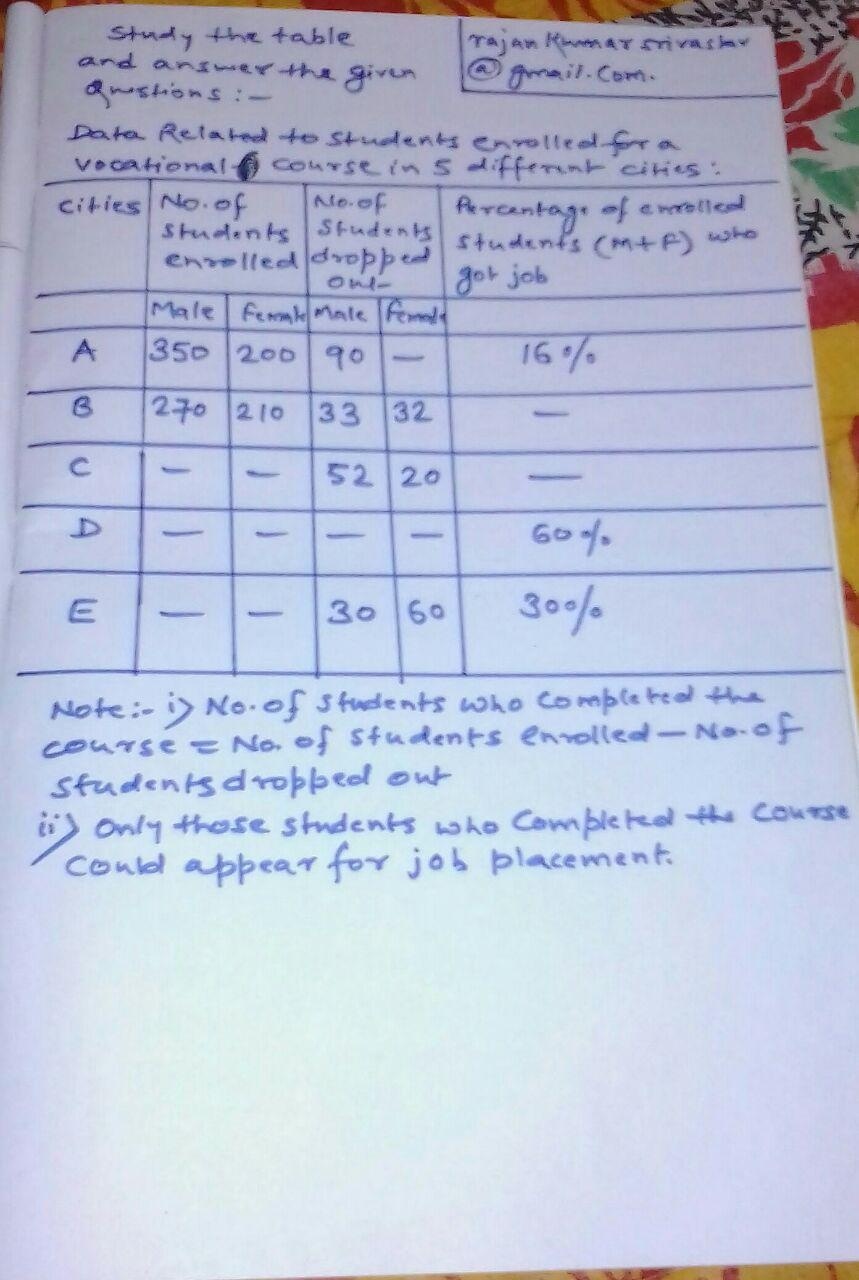 Study the table
and answer the given
Questions :-
rajan Kumar srivastav
@ gmail.com.
Data Related to Students enrolled for a
vocational course in 5 different cities :
Cities No. of Students enrolled No. of Students dropped out Percentage of enrolled students (M+F) who got job
Male Female Male Female
A 350 200 90 — 16 %
B 270 210 33 32 —
C — — 52 20 —
D — — — — 60 %
E — — 30 60 30%
Note :- i) No. of Students who Completed the
course = No. of students enrolled — No. of
students dropped out
ii) Only those students who Completed the Course
Could appear for job placement.